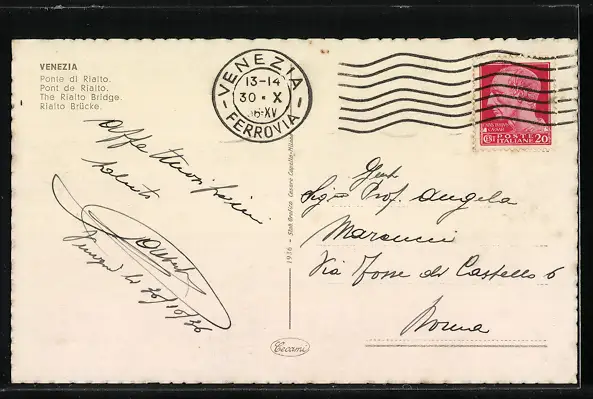 VENEZIA
Ponte di Rialto.
Pont de Rialto.
The Rialto Bridge.
Rialto Brücke.
VENEZIA
13-14
30·X
36·XV
- FERROVIA -
POSTE
ITALIANE
20
affettuosissimi
saluti
30/10/36
1936 - Stab. Grafico Cesare Capello - Milano
Cecami
Prof. Angela
Via Fosse di Castello 6
Roma